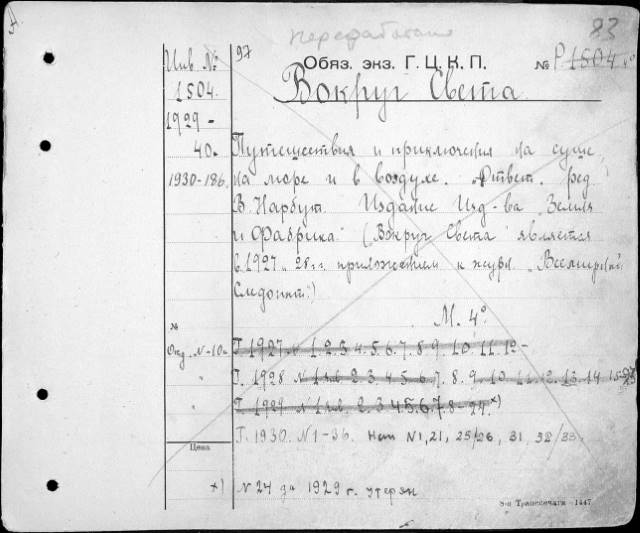 А.
переработано
83
97
Инв. №
Обяз. экз. Г. Ц. К. П. № Р 1504 40
1504.
Вокруг Света
1929 -
40.
1930-186.
Путешествия и приключения на суше,
на море и в воздухе. Ответ. ред.
В. Нарбут. Издание Изд-ва "Земля
и Фабрика." ("Вокруг Света" является
в 1927 - 28 г.г. приложением к журн. "Всемирный
Следопыт.")
М. 4°.
№
Г. 1927. № 1. 2. 3. 4. 5. 6. 7. 8. 9. 10. 11. 12 -
Г. 1928 № 2. 3. 4. 5. 6. 7. 8. 9. 10. 11. 12. 13. 14. 15
Г. 1929 № 2. 3. 4. 5. 6. 7. 8 - 24. x)
Г. 1930. № 1-36. Нет № 1, 21, 25/26, 31, 32/33.
Цена
x) № 24 за 1929 г. утерян
1447